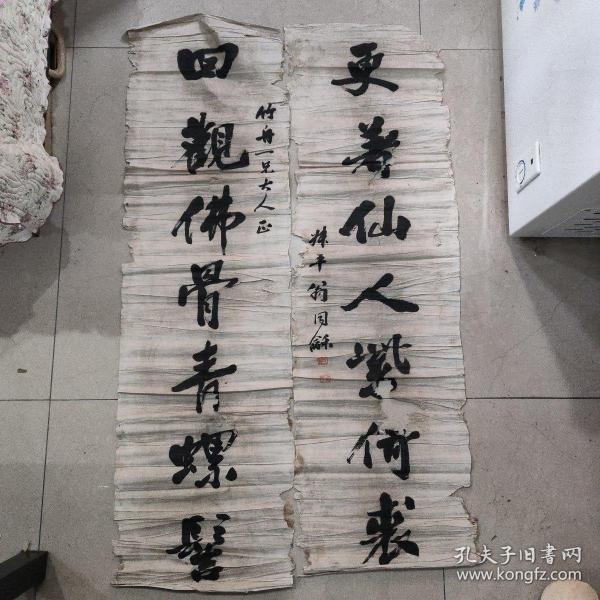 更著仙人紫裘
叔平翁同龢
竹舟一兄大人正
回觀佛骨青螺髻
孔夫子旧书网
www.kongfz.com